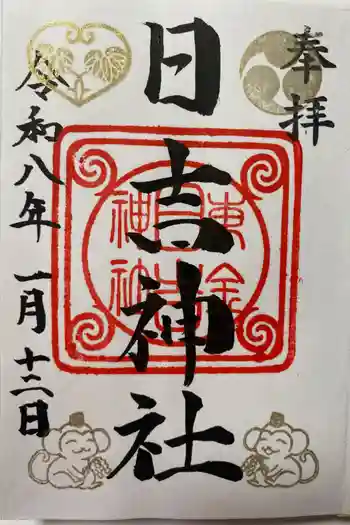 奉拝
日吉神社
令和八年 一月十二日
東金
日吉
神社